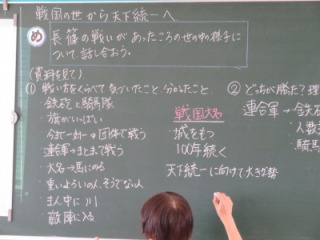 戦国の世から天下統一へ
め 長篠の戦いがあったころの世の中の様子に
ついて、話し合おう。
(資料を見て)
① 戦い方をくらべて気づいたこと 分かったこと
・鉄砲と騎馬隊
・旗がいっぱい
・今まで一対一→団体で戦う
・連合軍→まとまって戦う
・大名→馬にのる
・重いよろいの人、そうでない人
・まん中に川
・敵陣に入る
戦国大名
城をもつ
100年続く
天下統一に向けて大きな勢
② どっちが勝た? 理
連合軍→鉄砲
・人数
・騎馬